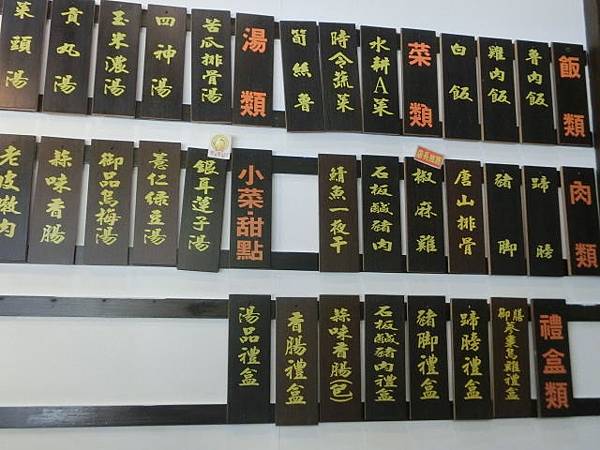 飯類
魯肉飯
雞肉飯
白飯
菜類
水耕A菜
時令蔬菜
筍絲魯
湯類
苦瓜排骨湯
四神湯
玉米濃湯
貢丸湯
菜頭湯
肉類
蹄膀
豬腳
唐山排骨
椒麻雞
石板鹹豬肉
鯖魚一夜干
小菜·甜點
銀耳蓮子湯
薏仁綠豆湯
御品烏梅湯
蒜味香腸
老皮嫩肉
禮盒類
御膳
烏雞禮盒
蹄膀禮盒
豬腳禮盒
石板鹹豬肉禮盒
蒜味香腸(包)
香腸禮盒
湯品禮盒